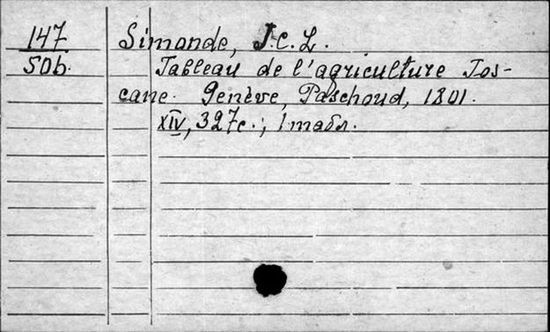 147 Simonde, J.C.L.
50b. Tableau de l'agriculture Tos-
cane. Genève, Paschoud, 1801.
XIV, 327c.; 1 табл.